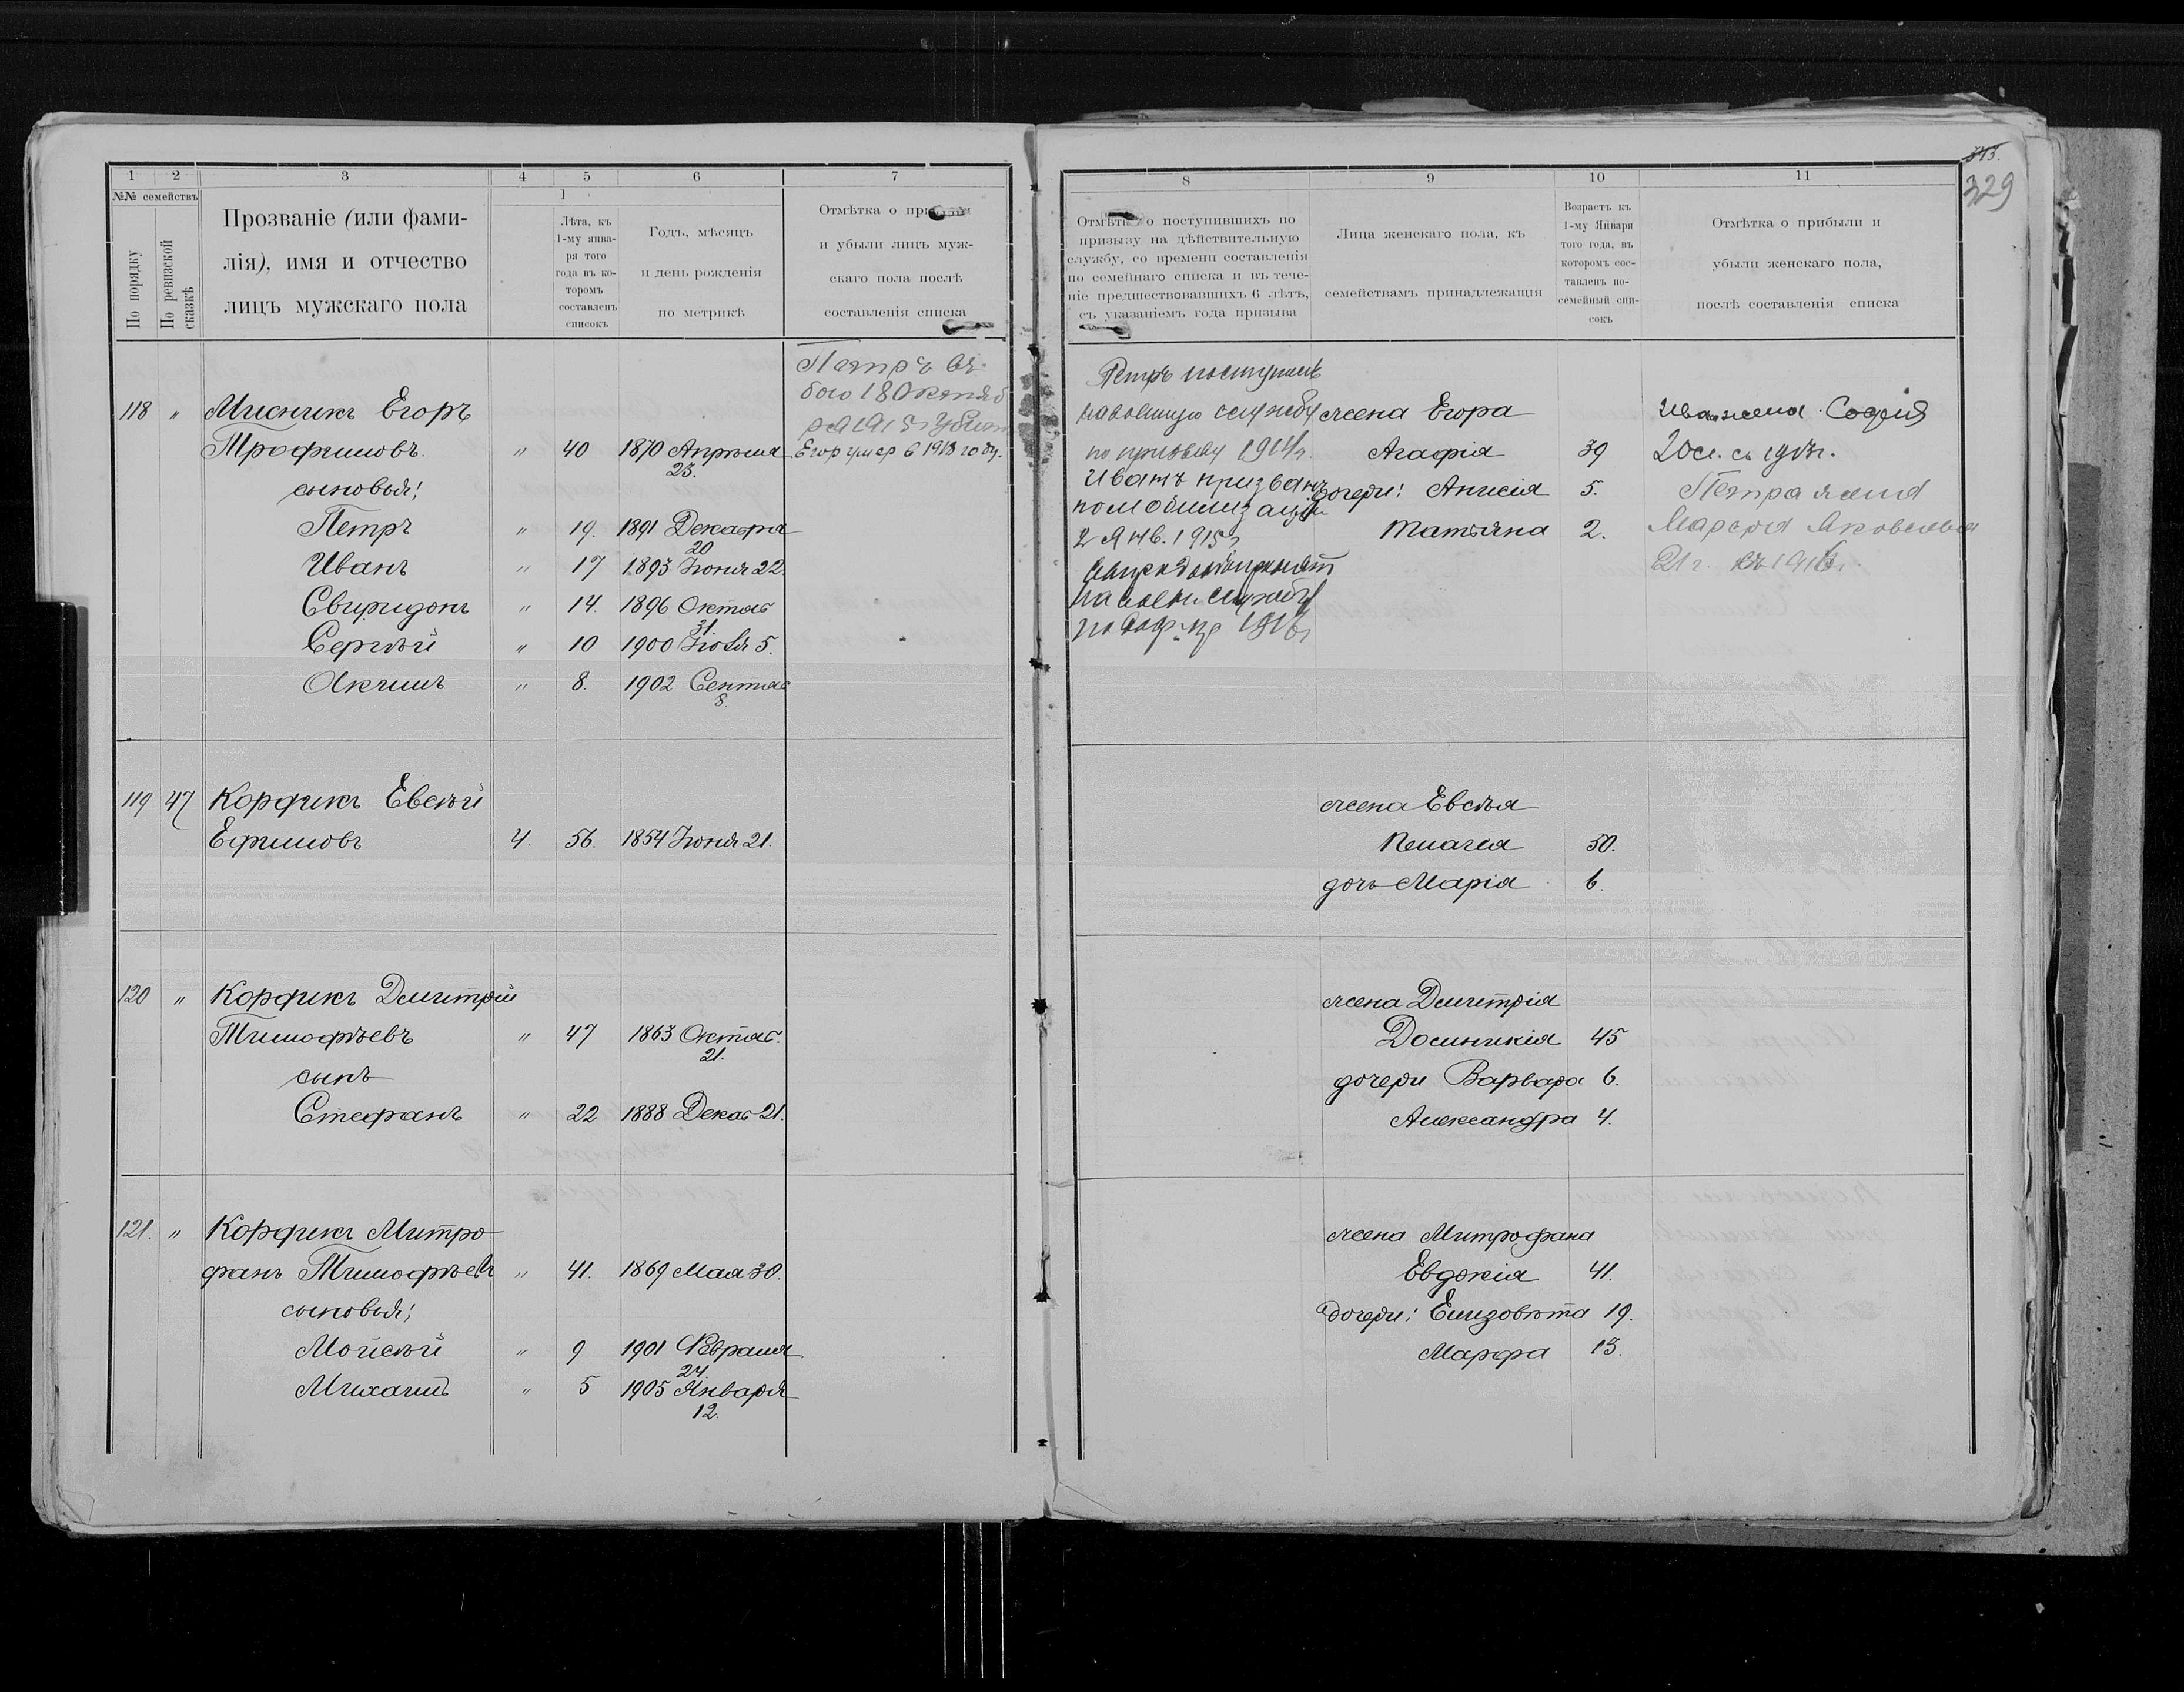 1 2 3 4 5 6 7
№№ семействъ
По порядку
По ревизской сказкѣ
Прозваніе (или фами-
лія), имя и отчество
лицъ мужскаго пола
Лѣта, къ
1-му янва-
ря того
года въ ко-
торомъ
составленъ
списокъ
Годъ, мѣсяцъ
и день рожденія
по метрикѣ
Отмѣтка о прибыли
и убыли лицъ муж-
скаго пола послѣ
составленія списка
118 " Мисникъ Егоръ
Трофимовъ. " 40 1870 Апрѣля
23.
сыновья:
Петръ " 19. 1891 Декабря
20
Иванъ " 17 1893 Іюня 22.
Свиридонъ " 14. 1896 Октяб
31.
Сергѣй " 10 1900 Іюля 5.
Акимъ " 8. 1902 Сентяб
8.
Петръ въ
бою 18 Октяб
ря 1915 г убит
Егор умер в 1913 году.
119 47 Кордикъ Евсѣй
Ефимовъ 4. 56. 1854 Іюня 21.
120 " Кордикъ Дмитрій
Тимофѣевъ " 47 1863 Октяб.
21.
сынъ
Стефанъ " 22 1888 Декаб 21.
121. " Кордикъ Митро
фанъ Тимофѣевъ " 41. 1869 Мая 30.
сыновья:
Мойсѣй " 9 1901 Февраля
24.
Михаилъ " 5 1905 Января
12.
343.
329
8 9 10 11
Отмѣтка о поступившихъ по
призыву на дѣйствительную
службу, со времени составленія
по семейнаго списка и въ тече-
ніе предшествовавшихъ 6 лѣтъ,
съ указаніемъ года призыва
Лица женскаго пола, къ
семействамъ принадлежащія
Возрастъ къ
1-му Января
того года, въ
которомъ сос-
тавленъ по-
семейный спи-
сокъ
Отмѣтка о прибыли и
убыли женскаго пола,
послѣ составленія списка
Петръ поступилъ
на военную службу
по призыву 1914 г.
Иванъ призванъ
по мобилизации
2 Янв. 1915 г
принят
на воен. службу
1916 г
жена Егора
Агафія 39
дочери: Анисія 5.
Татьяна 2.
Ива жена София
20 л. съ 1913 г.
Петра жена
Марфа Яковлева
21 г. въ 1916 г.
жена Евсѣя
Пелагея 50.
дочь Марія 6.
жена Дмитрія
Домникія 45
дочери Варвара 6.
Александра 4.
жена Митрофана
Евдокія 41.
дочери: Елизовѣта 19.
Марфа 13.